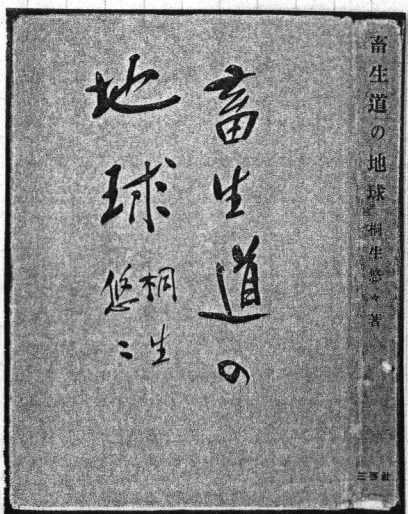 畜生道の
地球
桐生
悠々
畜生道の地球 桐生悠々著
三啓社